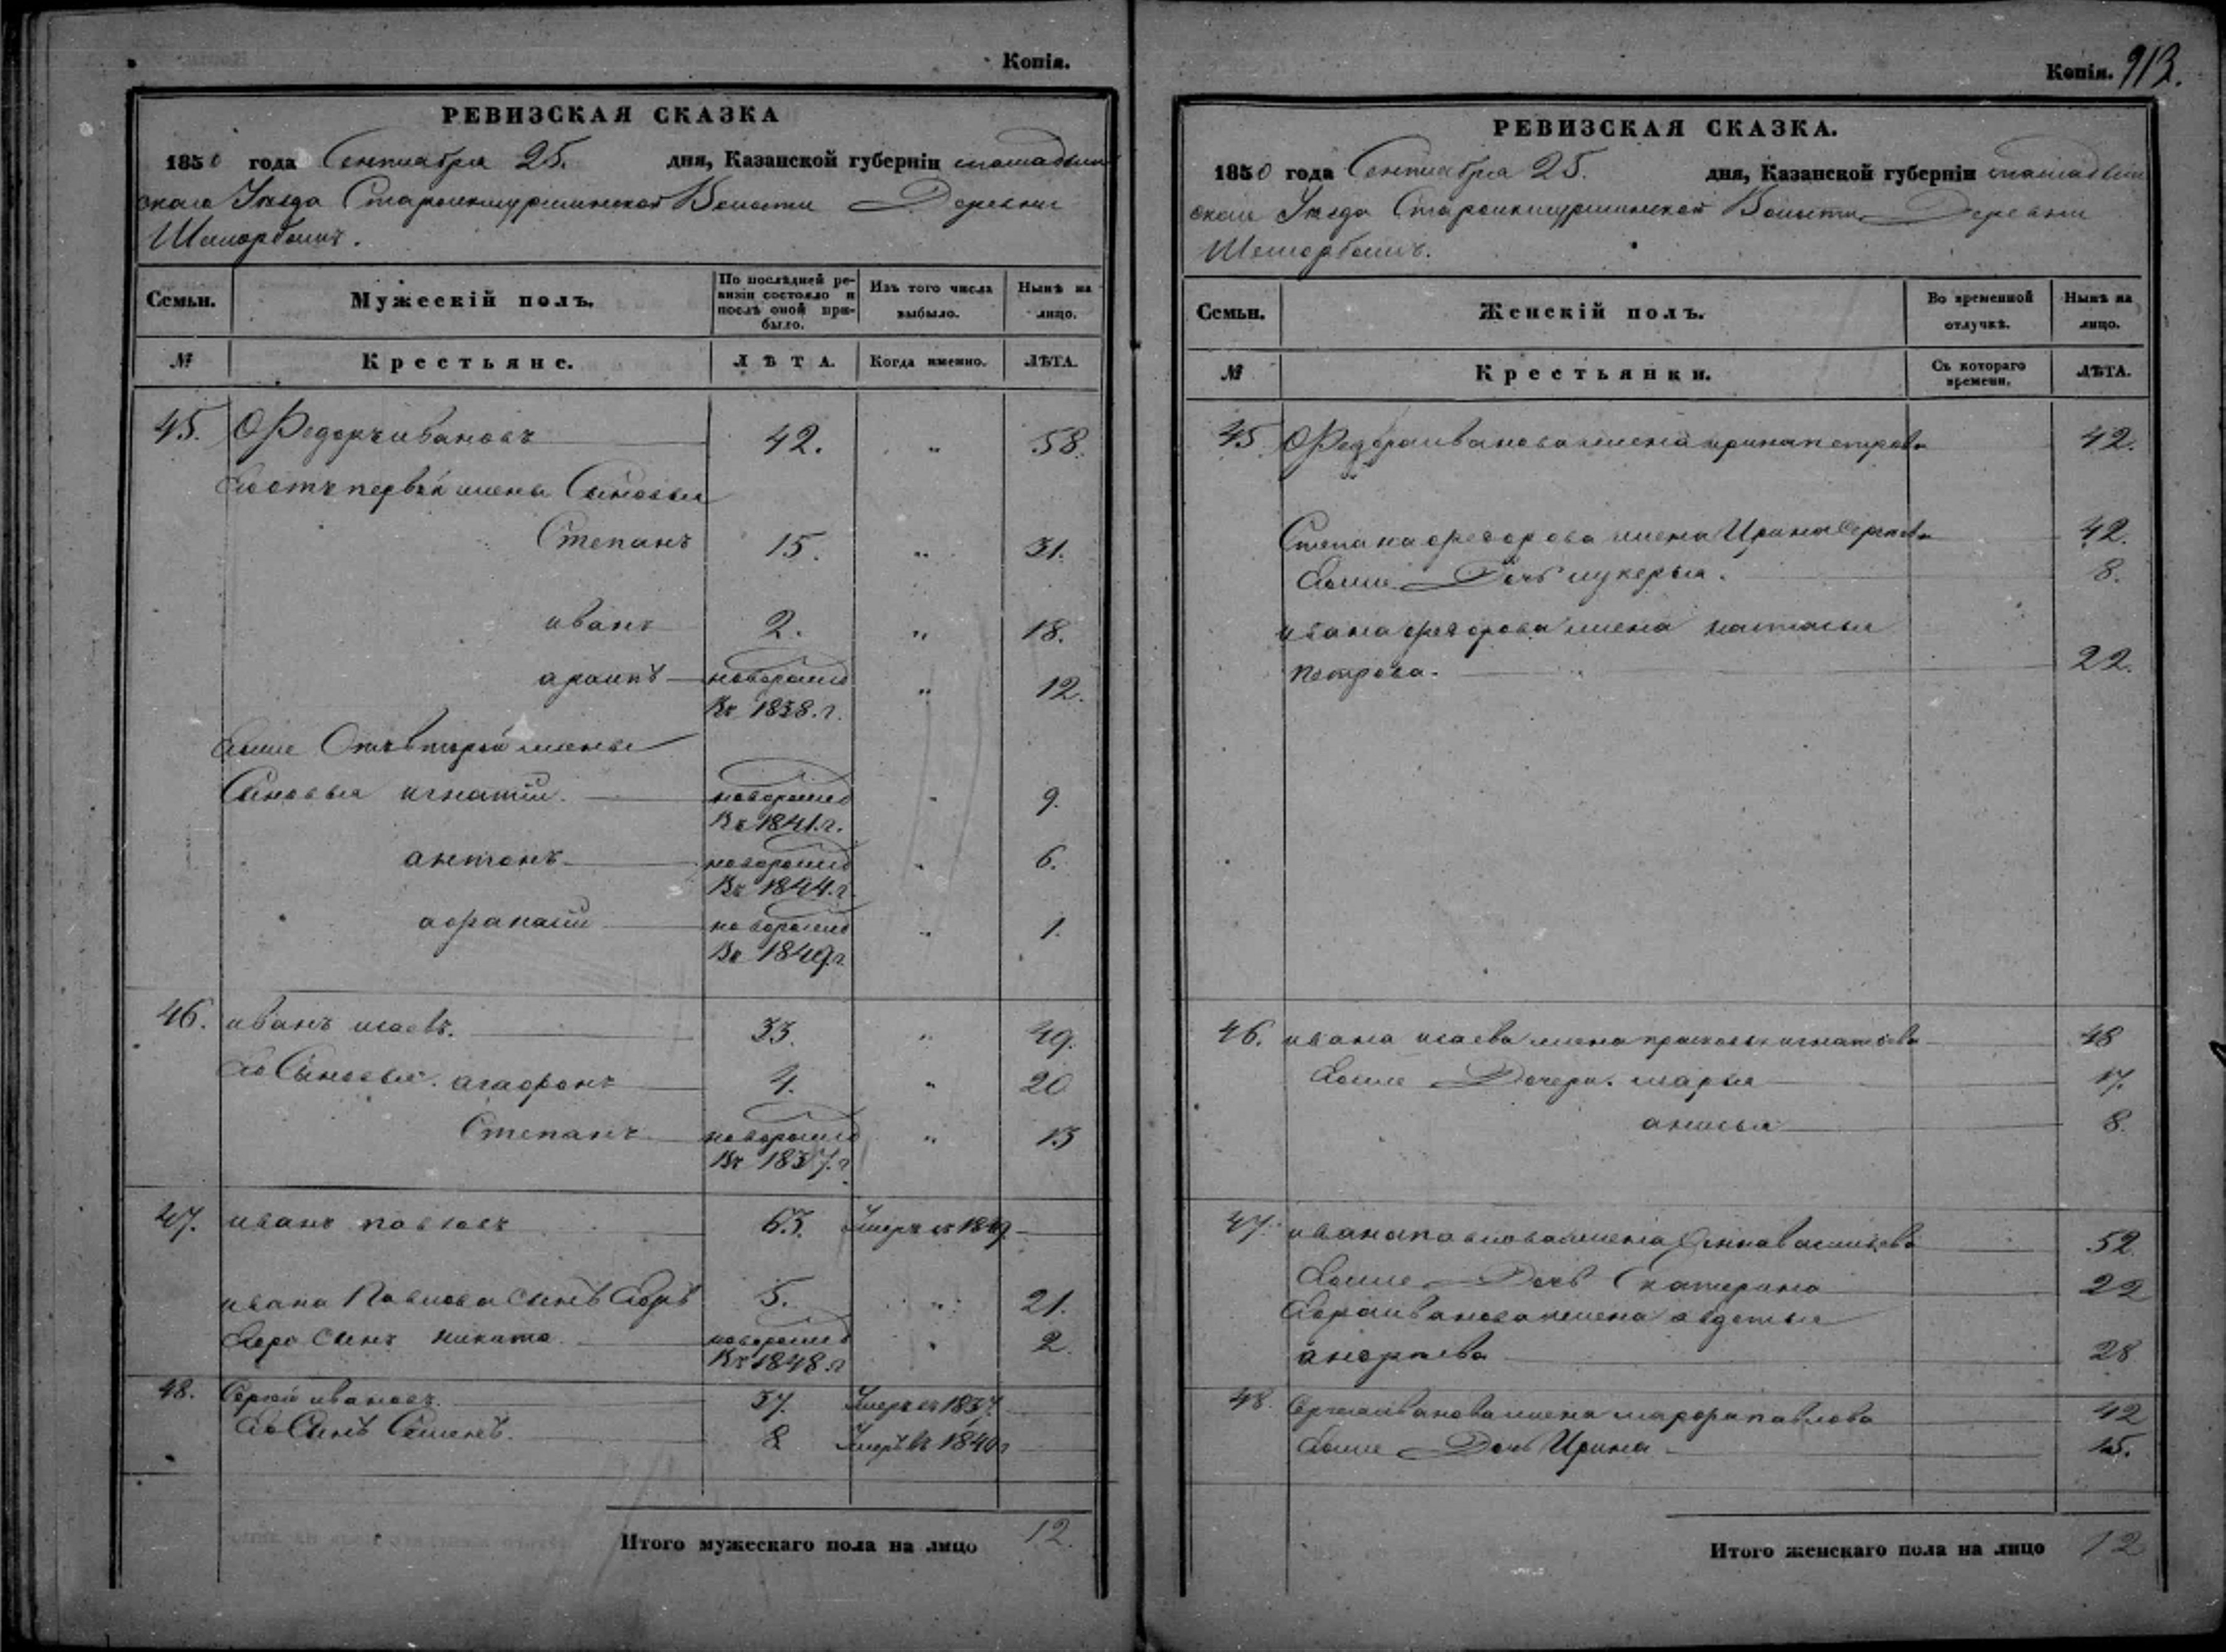 Копія.
РЕВИЗСКАЯ СКАЗКА
1850 года Сентября 25. дня, Казанской губерніи мамадыш
скаго Уѣзда Волости Деревни
Шеморбашъ.
Семьи.
Мужескій полъ.
По послѣдней ре-
визіи состояло и
послѣ оной при-
было.
Изъ того числа
выбыло.
Нынѣ на
лицо.
№
Крестьяне.
ЛѢТА.
Когда именно.
ЛѢТА.
45. Федоръ ивановъ 42. „ 58.
Его отъ первой жены Сыновья
Степанъ 15. „ 31.
иванъ 2. „ 18.
новорожд „ 12.
Въ 1838.г.
Его же Отъ второй жены
Сыновья игнатій. новорожд „ 9.
Въ 1841.г.
антонъ новорожд „ 6.
Въ 1844.г.
афанасій новорожд „ 1.
Въ 1849.г.
46. иванъ исаевъ. 33. „ 49.
Его Сыновья. агафонъ 4. „ 20
Степанъ новорожд „ 13
Въ 1837.г.
47. иванъ павловъ 63. Умеръ въ 1849
ивана Павлова Сынъ Егоръ 5. „ 21.
Егора Сынъ никита новорожд „ 2.
Въ 1848.г
48. Сергѣй ивановъ. 37. Умеръ въ 1837.
Его Сынъ Семенъ. 8 Умеръ въ 1840г
Итого мужескаго пола на лицо 12.
Копія. 913.
РЕВИЗСКАЯ СКАЗКА.
1850 года Сентября 25. дня, Казанской губерніи мамадыш
скаго Уѣзда Волости Деревни
Шеморбашъ.
Семьи.
Женскій полъ.
Во временной
отлучкѣ.
Нынѣ на
лицо.
№
Крестьянки.
Съ котораго
времени.
ЛѢТА.
45. Федора иванова жена ирина петрова 42.
Степана федорова жена Ирина Сергѣева 42.
Его же Дочь лукерья. 8.
ивана федорова жена настасья
петрова. 22.
46. ивана исаева жена прасковья игнатьева 48
Его же Дочери. марья 17.
анисья 8.
47. ивана павлова жена Анна васильева 52
Его же Дочь Екатерина 22
Егора иванова жена авдотья
андреева 28
48. Сергея иванова жена марфа павлова 42
Его же Дочь Ирина 15.
Итого женскаго пола на лицо 12